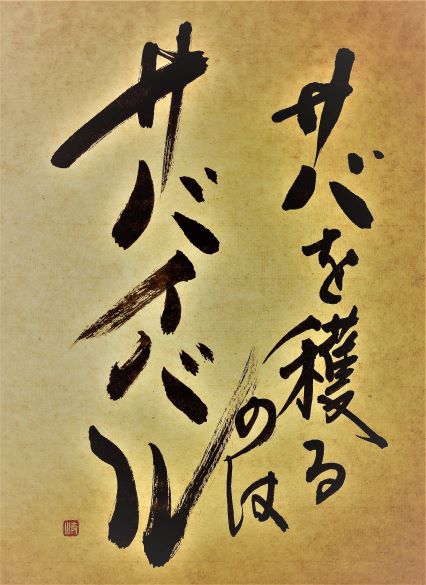 サバを獲る
のは
サバイバル